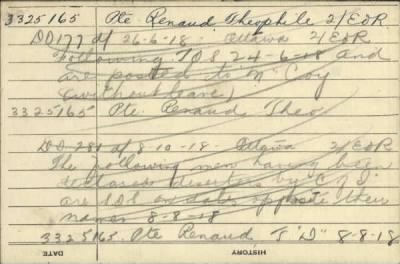 3325165 Pte Renaud Theophile 2/EOR
DO 177 d/ 26-6-18 - Ottawa 2/EOR
Following TOS 24-6-18 and
are posted to "C" Coy
(without leave)
3325165 Pte. Renaud Theo
DO 281 d/ 8-10-18 - Ottawa 2/EOR
The following men having been
declared deserters by C of I
are SOS on dates opposite their
names 8-8-18
3325165 Pte Renaud T "D" 8-8-18
DATE HISTORY